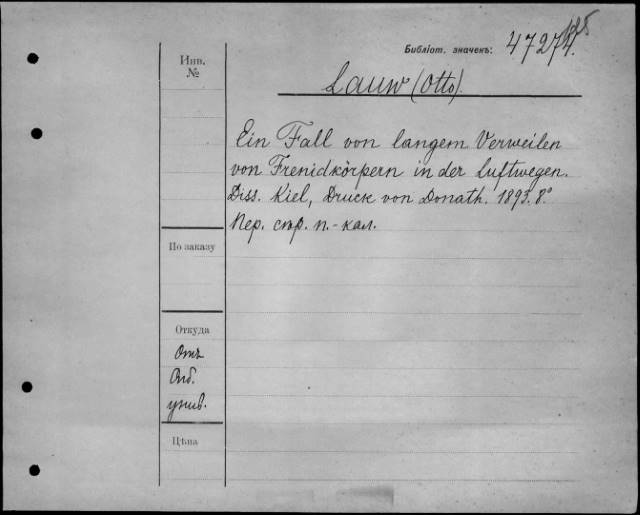 Инв. №
Библіот. значекъ: 47274
Lauw (Otto).
Ein Fall von langem Verweilen
von Frenidkörpern in der luftwegen.
Diss. Kiel, Druck von Donath. 1893. 8°
Пер. стр. п.-кал.
По заказу
Откуда
Отъ
унив.
Цѣна